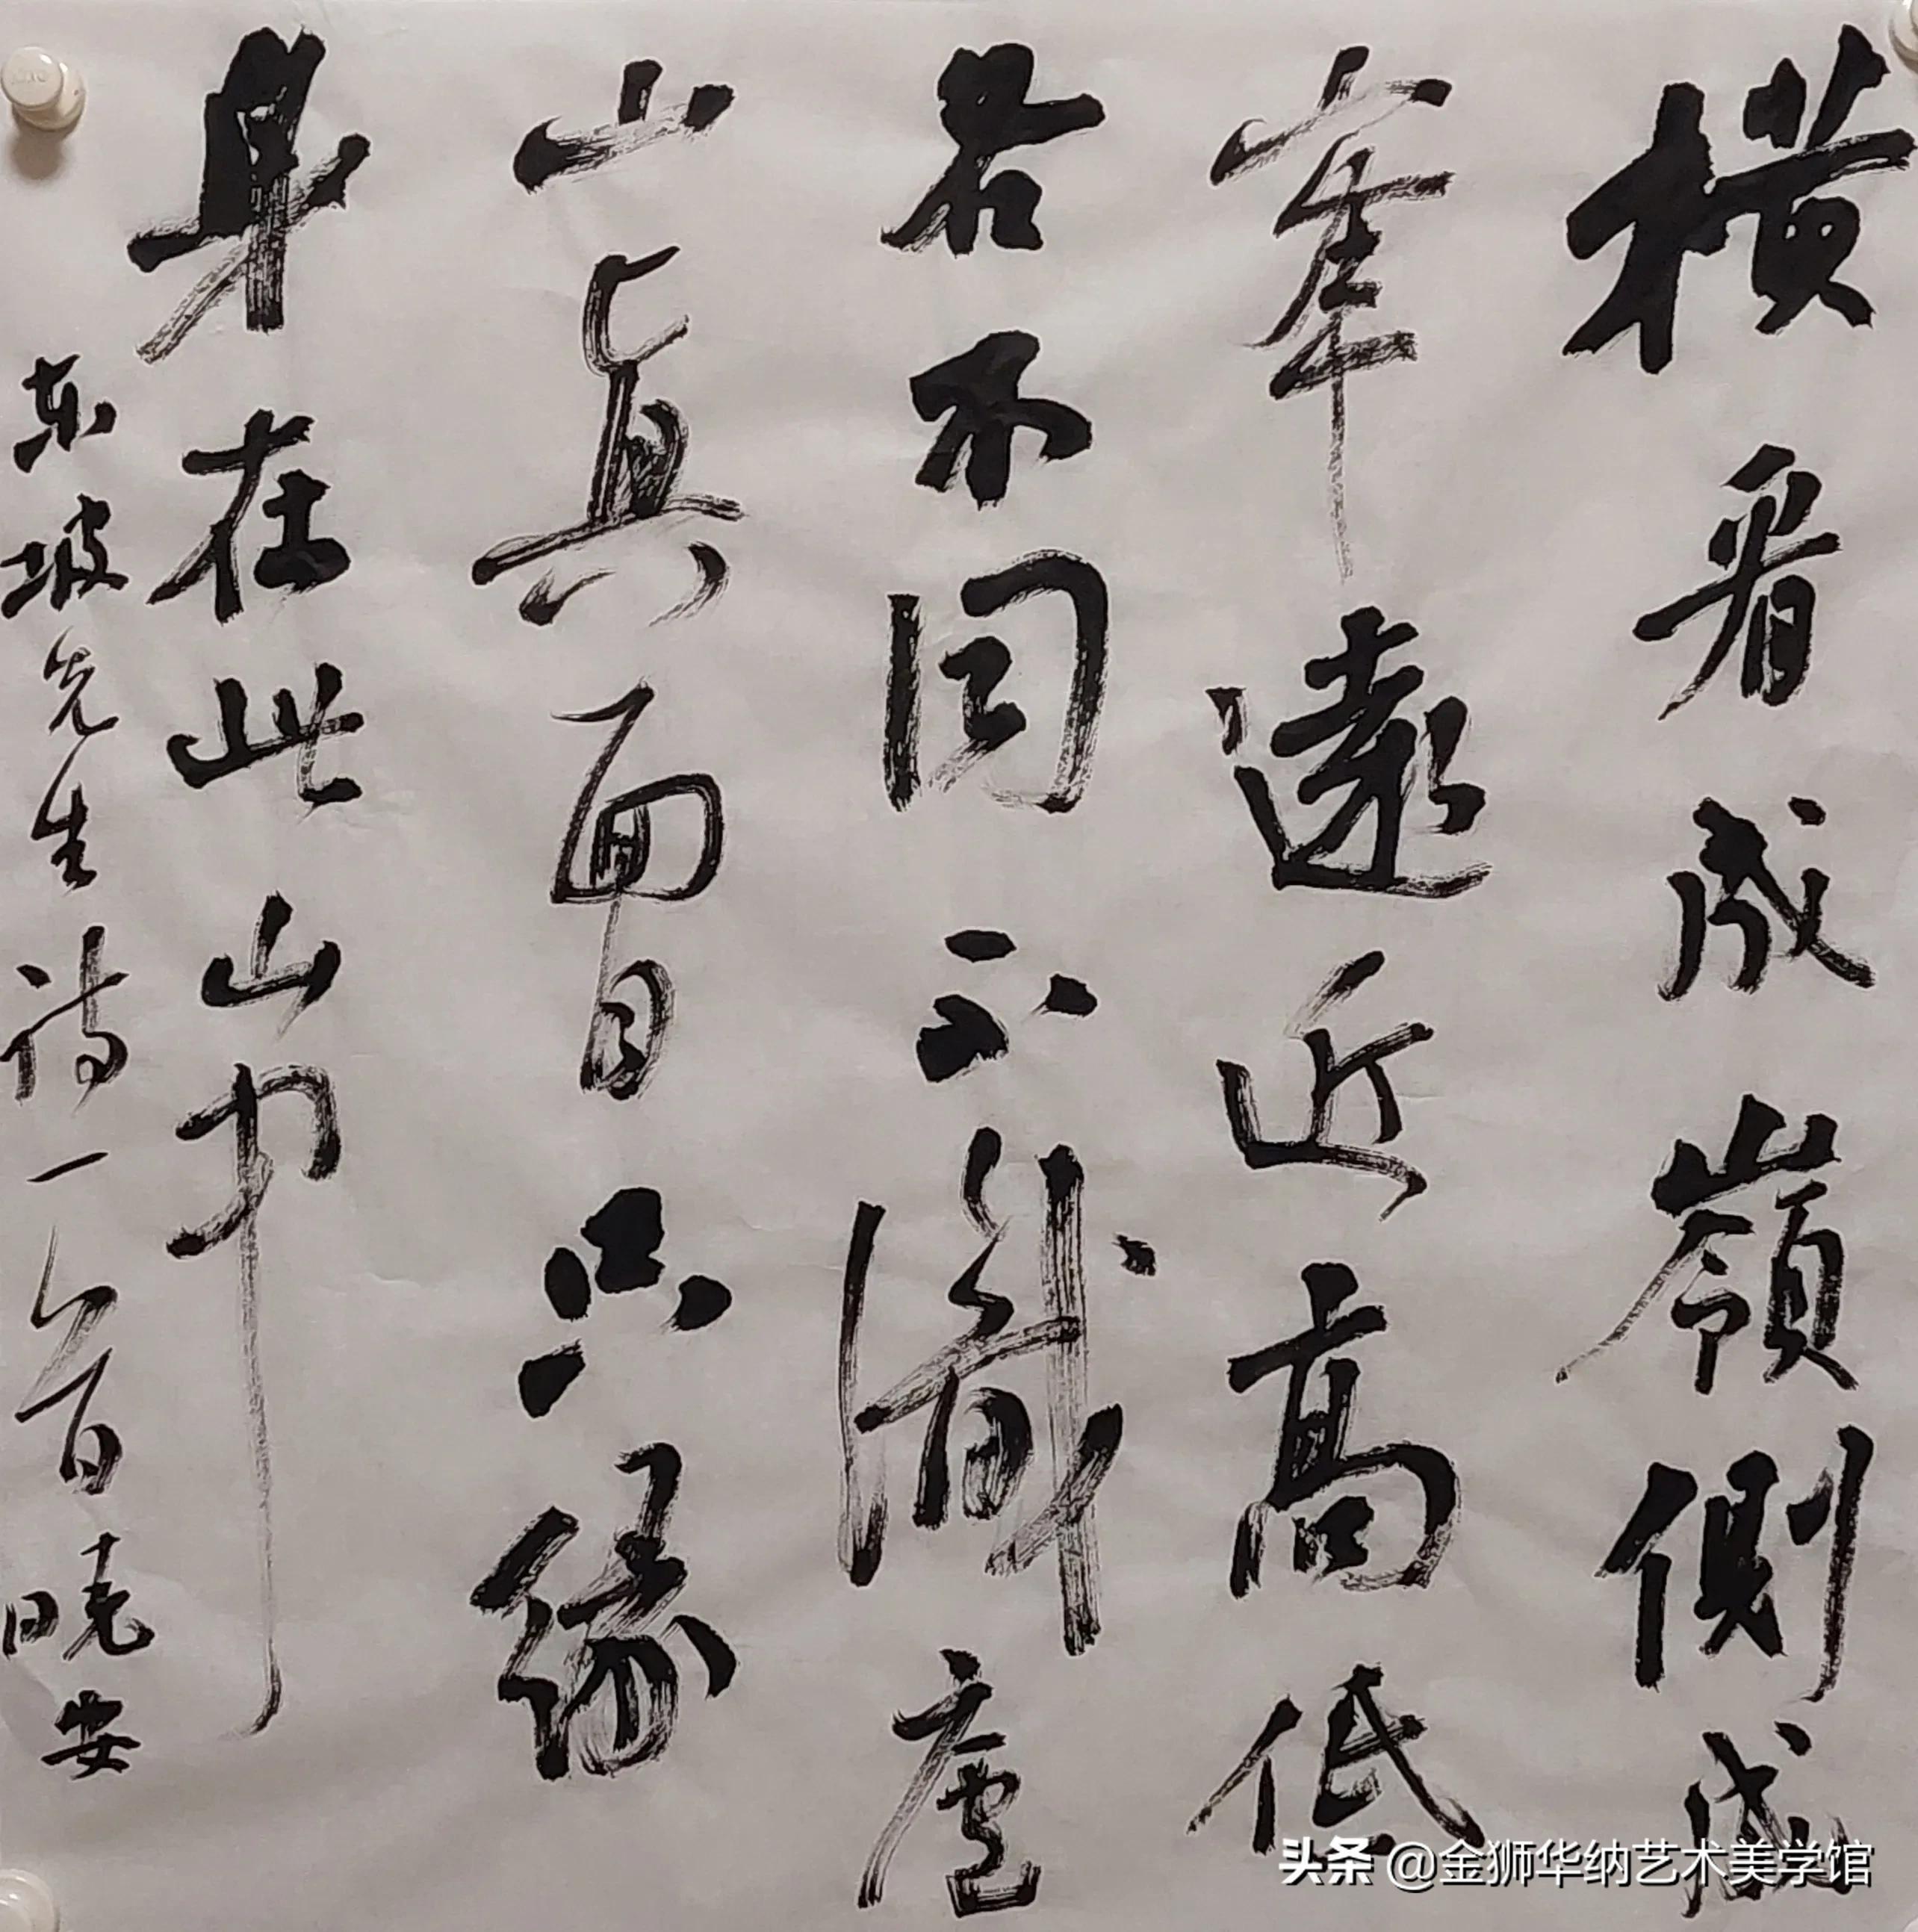 橫看成嶺側成
峯遠近高低
各不同不識廬
山真面目只緣
身在此山中
东坡先生诗一首晓安
头条 @金狮华纳艺术美学馆